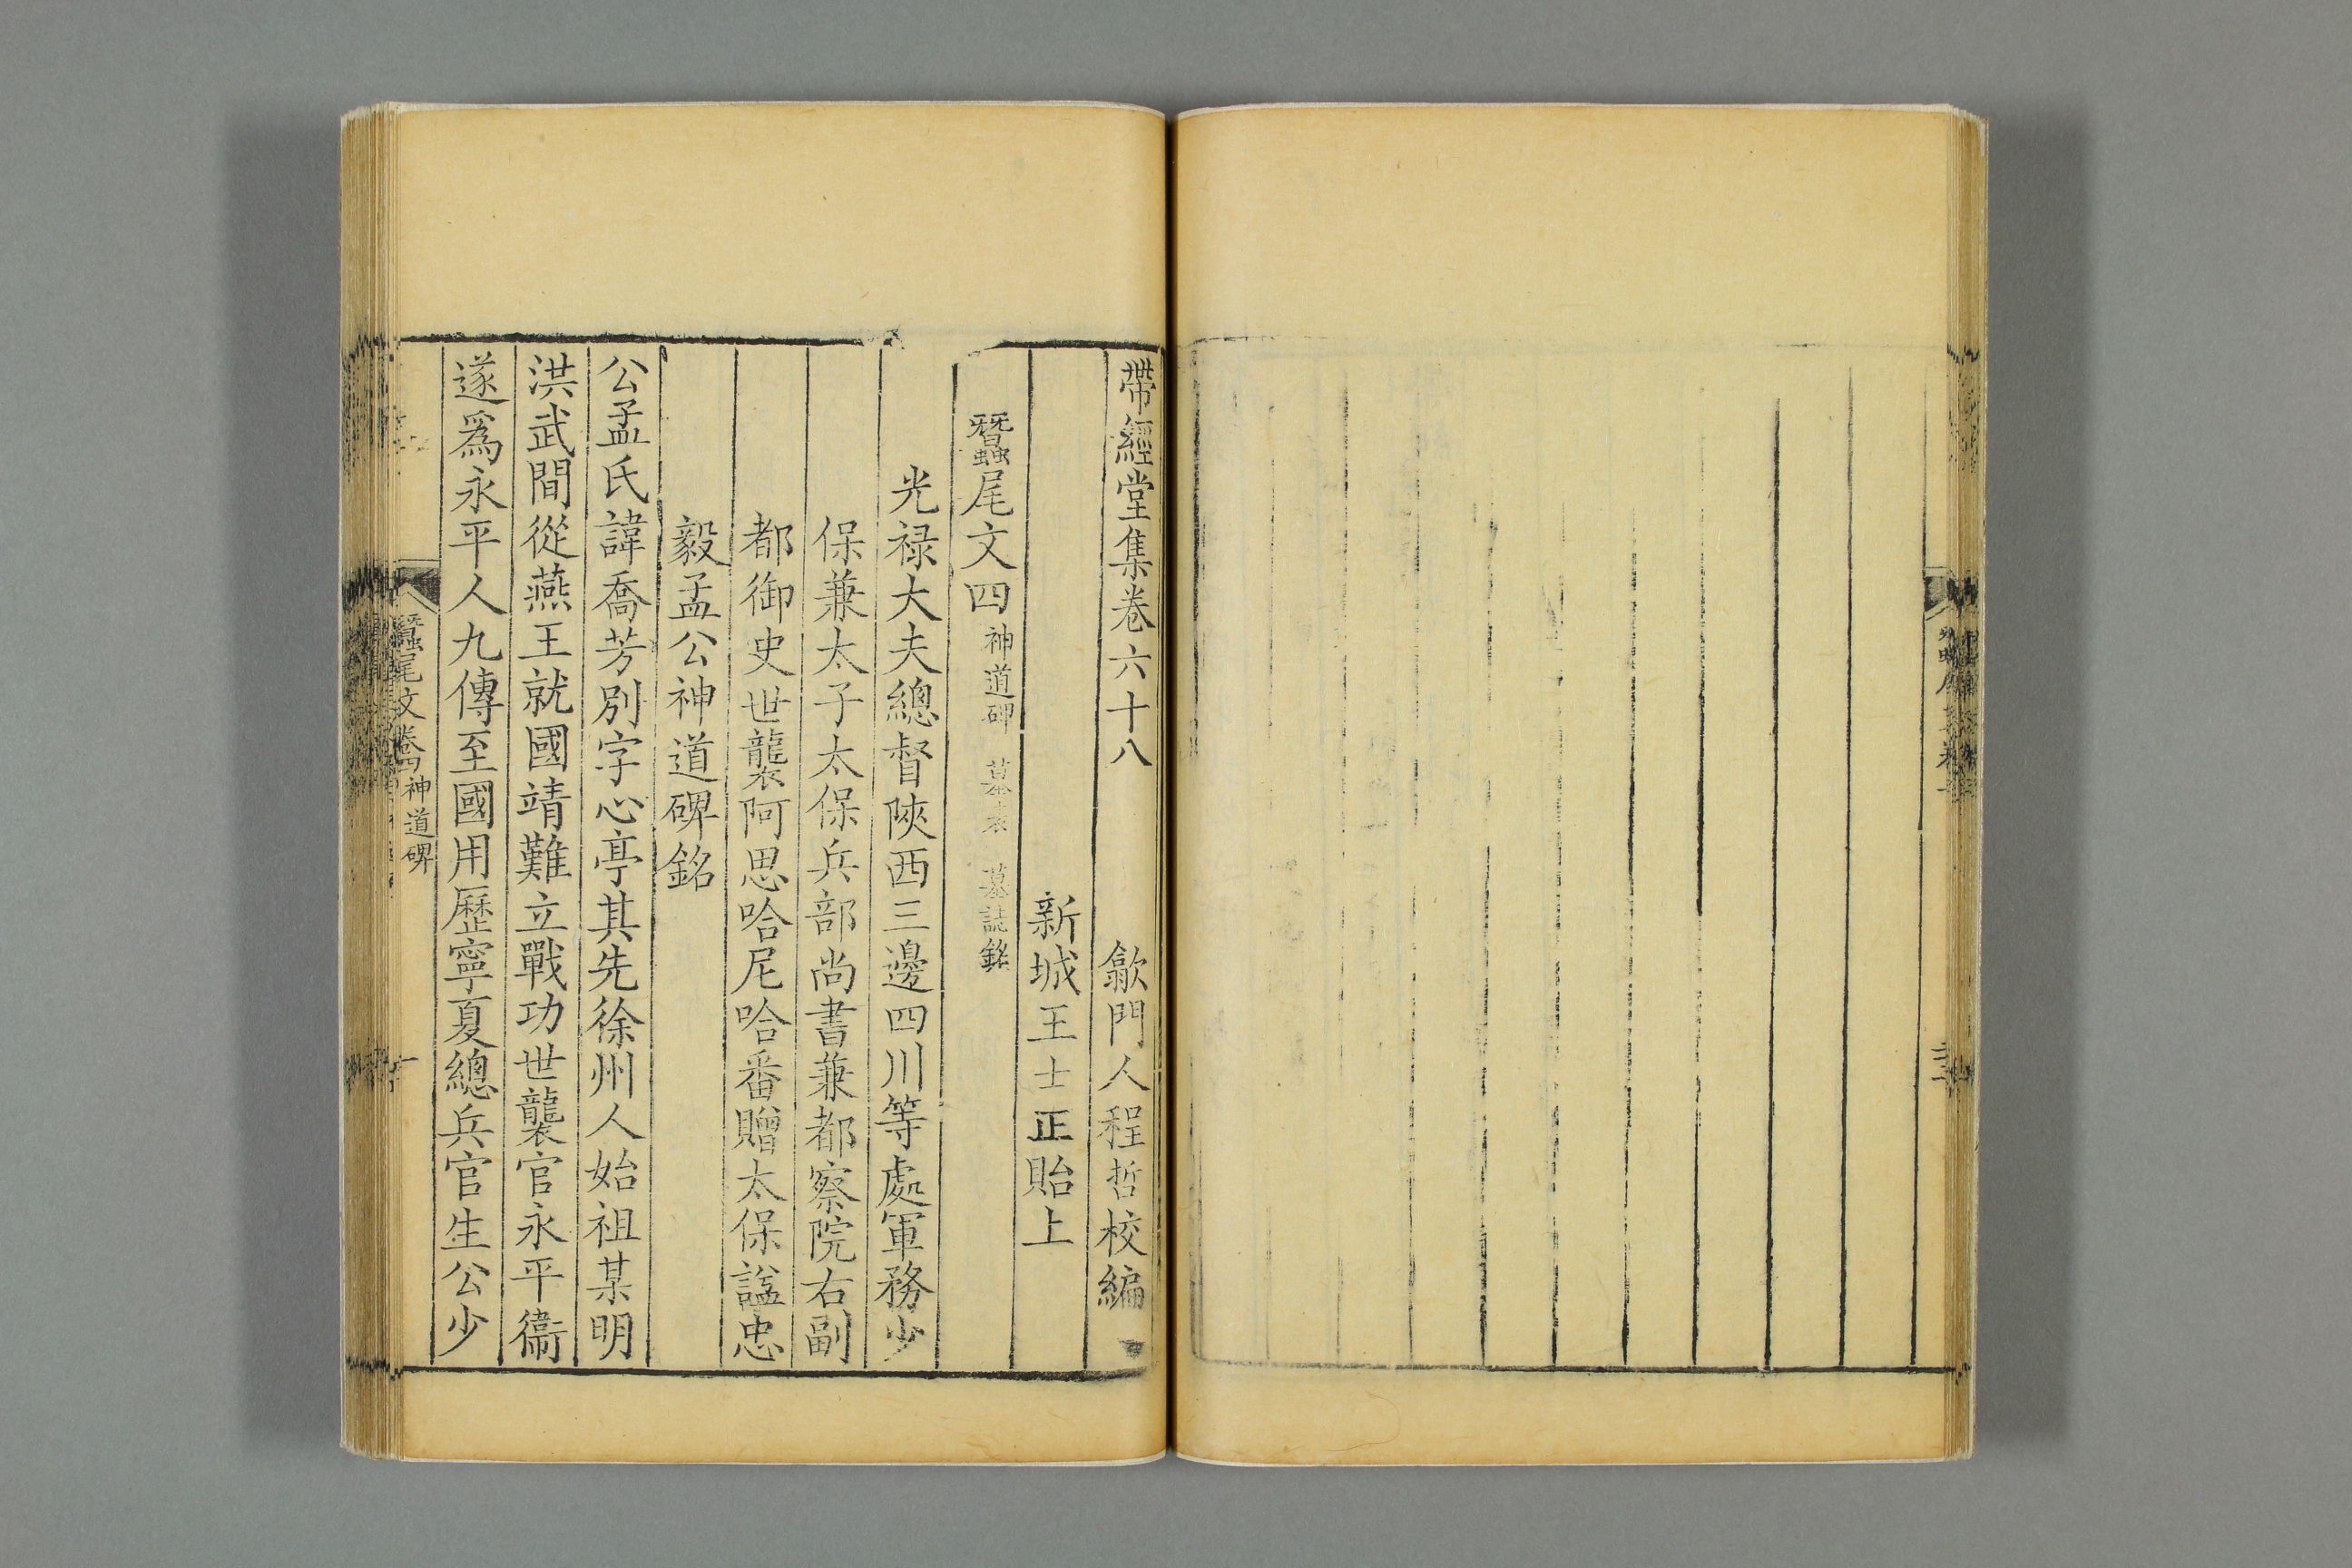 帶經堂集卷六十八　歙門人程哲校編
新城王士正貽上
蠶尾文四 神道碑 墓表 墓誌銘
光禄大夫總督陝西三邊四川等處軍務少
保兼太子太保兵部尚書兼都察院右副
都御史世襲阿思哈尼哈番贈太保諡忠
毅孟公神道碑銘
公孟氏諱喬芳別字心亭其先徐州人始祖某明
洪武間從燕王就國靖難立戰功世襲官永平衞
遂爲永平人九傳至國用歷寧夏總兵官生公少
蠶尾文卷四 神道碑 一